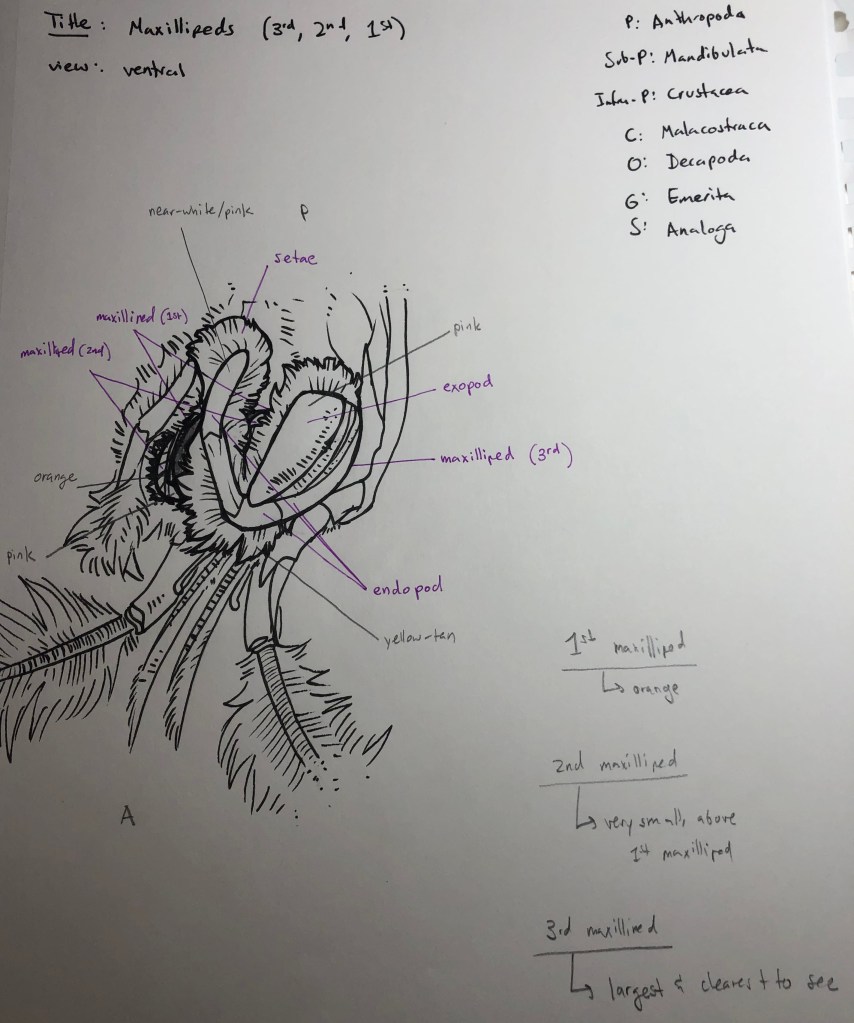 Title: Maxillipeds (3rd, 2nd, 1st)
view: ventral
P: Anthropoda
Sub-P: Mandibulata
Infra-P: Crustacea
C: Malacostraca
O: Decapoda
G: Emerita
S: Analoga
near-white/pink
P
setae
maxilliped (1st)
maxilliped (2nd)
pink
exopod
maxilliped (3rd)
orange
pink
endopod
yellow-tan
A
1st maxilliped
↳ orange
2nd maxilliped
↳ very small, above
1st maxilliped
3rd maxilliped
↳ largest & clearest to see